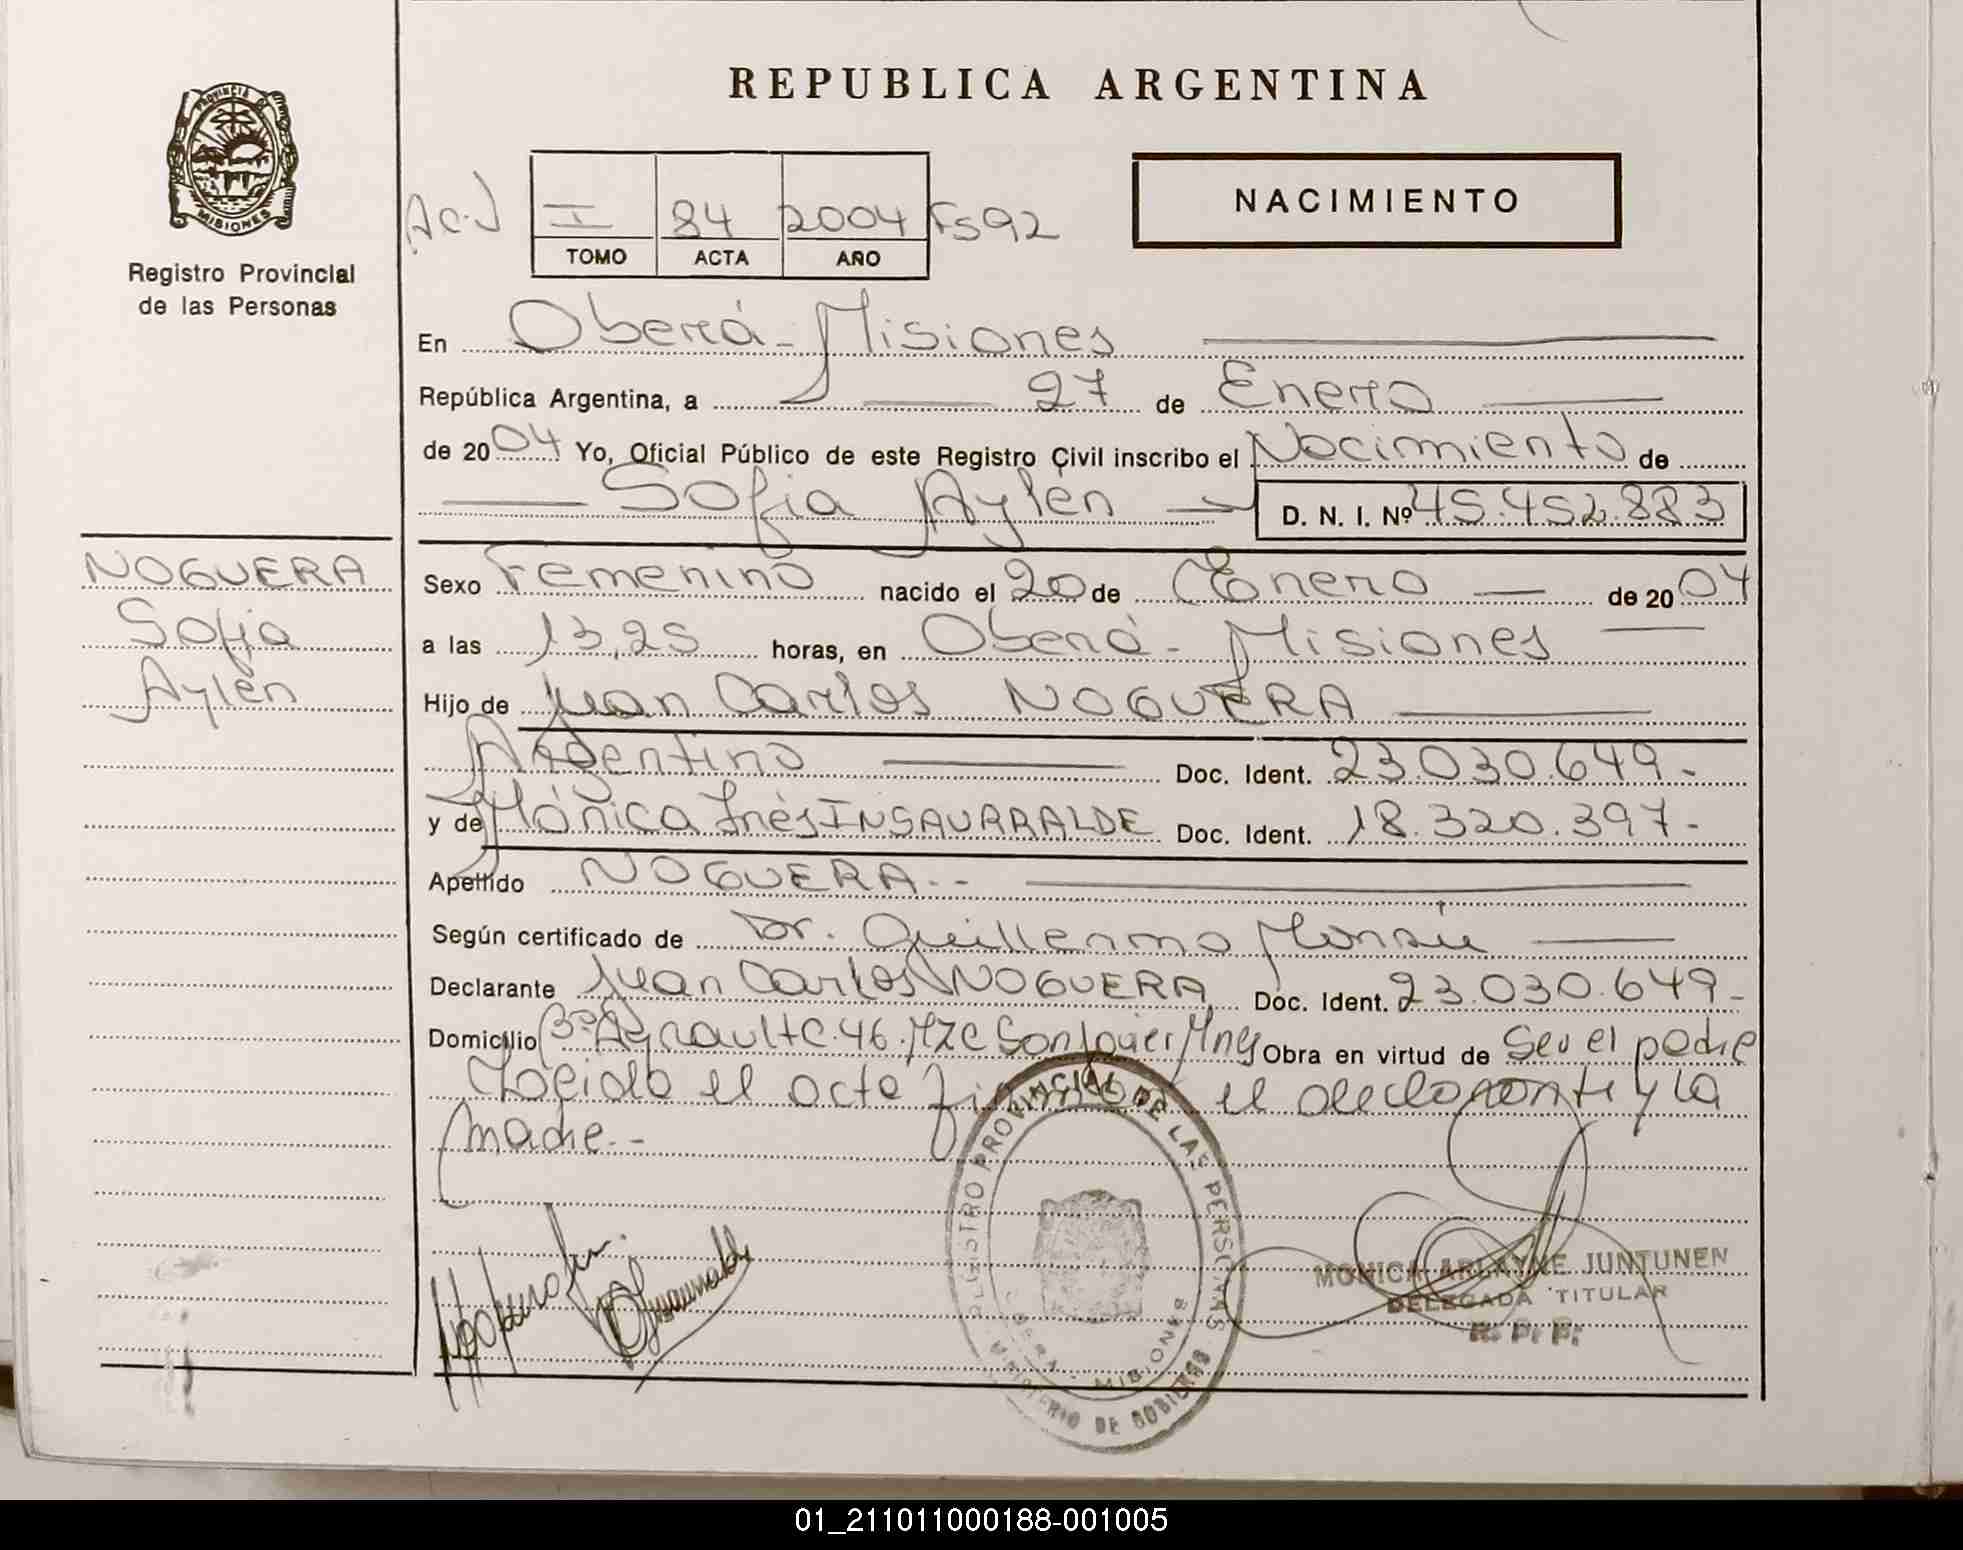 REPUBLICA ARGENTINA
PROVINCIA DE MISIONES
Registro Provincial
de las Personas
NACIMIENTO
I 84 2004 Fs 92
TOMO ACTA AÑO
En Oberá - Misiones
República Argentina, a 27 de Enero
de 2004 Yo, Oficial Público de este Registro Civil inscribo el Nacimiento de
Sofia Aylén D. N. I. Nº 45.452.883
NOGUERA
Sofia
Aylén
Sexo Femenino nacido el 20 de Enero de 2004
a las 13,25 horas, en Oberá - Misiones
Hijo de Juan Carlos NOGUERA
Argentino Doc. Ident. 23.030.649.-
y de Mónica Inés INSAURRALDE Doc. Ident. 18.320.397.-
Apellido NOGUERA.--
Según certificado de Dr. Guillermo
Declarante Juan Carlos NOGUERA Doc. Ident. 23.030.649.-
Domicilio Bº Ayrault C. 46. Mz C San Javier Mnes Obra en virtud de Ser el padre
el acta firman el declarante y la
madre.--
REGISTRO PROVINCIAL DE LAS PERSONAS
OBERA - MISIONES
MINISTERIO DE GOBIERNO
MONICA ARLAYNE JUNTUNEN
DELEGADA TITULAR
R. P. P.
01_211011000188-001005